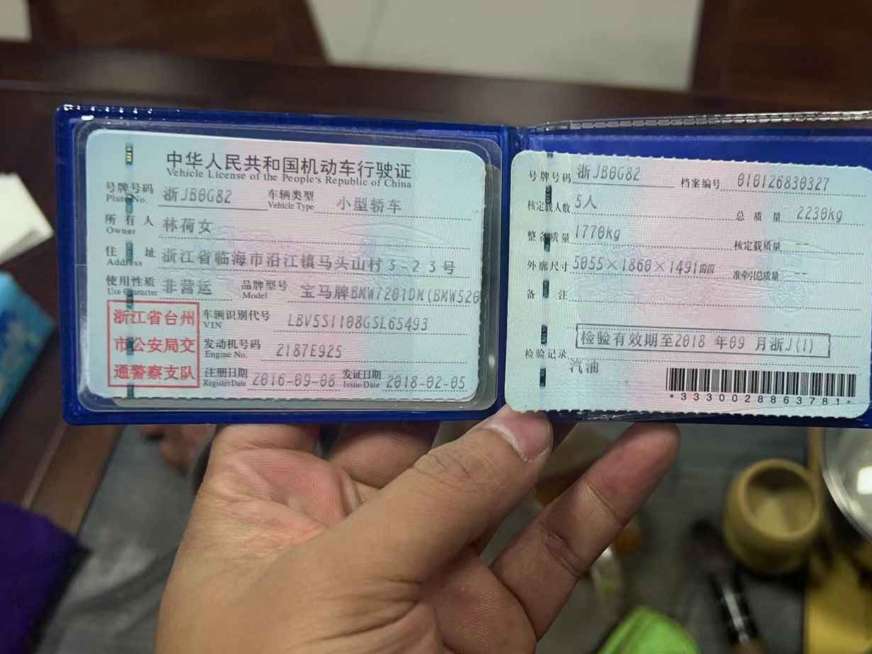 中华人民共和国机动车行驶证
Vehicle License of the People's Republic of China
号牌号码 浙JB0G82 车辆类型 小型轿车
Plate No. Vehicle Type
所有人 林荷女
Owner
住址 浙江省临海市沿江镇马头山村3-23号
Address
使用性质 非营运 品牌型号 宝马牌BMW7201DM(BMW520
Use Character Model
浙江省台州
市公安局交
通警察支队
车辆识别代号 LBV5S1108GSL65493
VIN
发动机号码 2187E925
Engine No.
注册日期 2016-09-08 发证日期 2018-02-05
Register Date Issue Date
号牌号码 浙JB0G82 档案编号 010126830327
核定载人数 5人 总质量 2230kg
整备质量 1770kg 核定载质量 --
外廓尺寸 5055×1860×1491mm 准牵引总质量 --
备注
检验有效期至2018年09月浙J(1)
检验记录
汽油
*3330028863781*